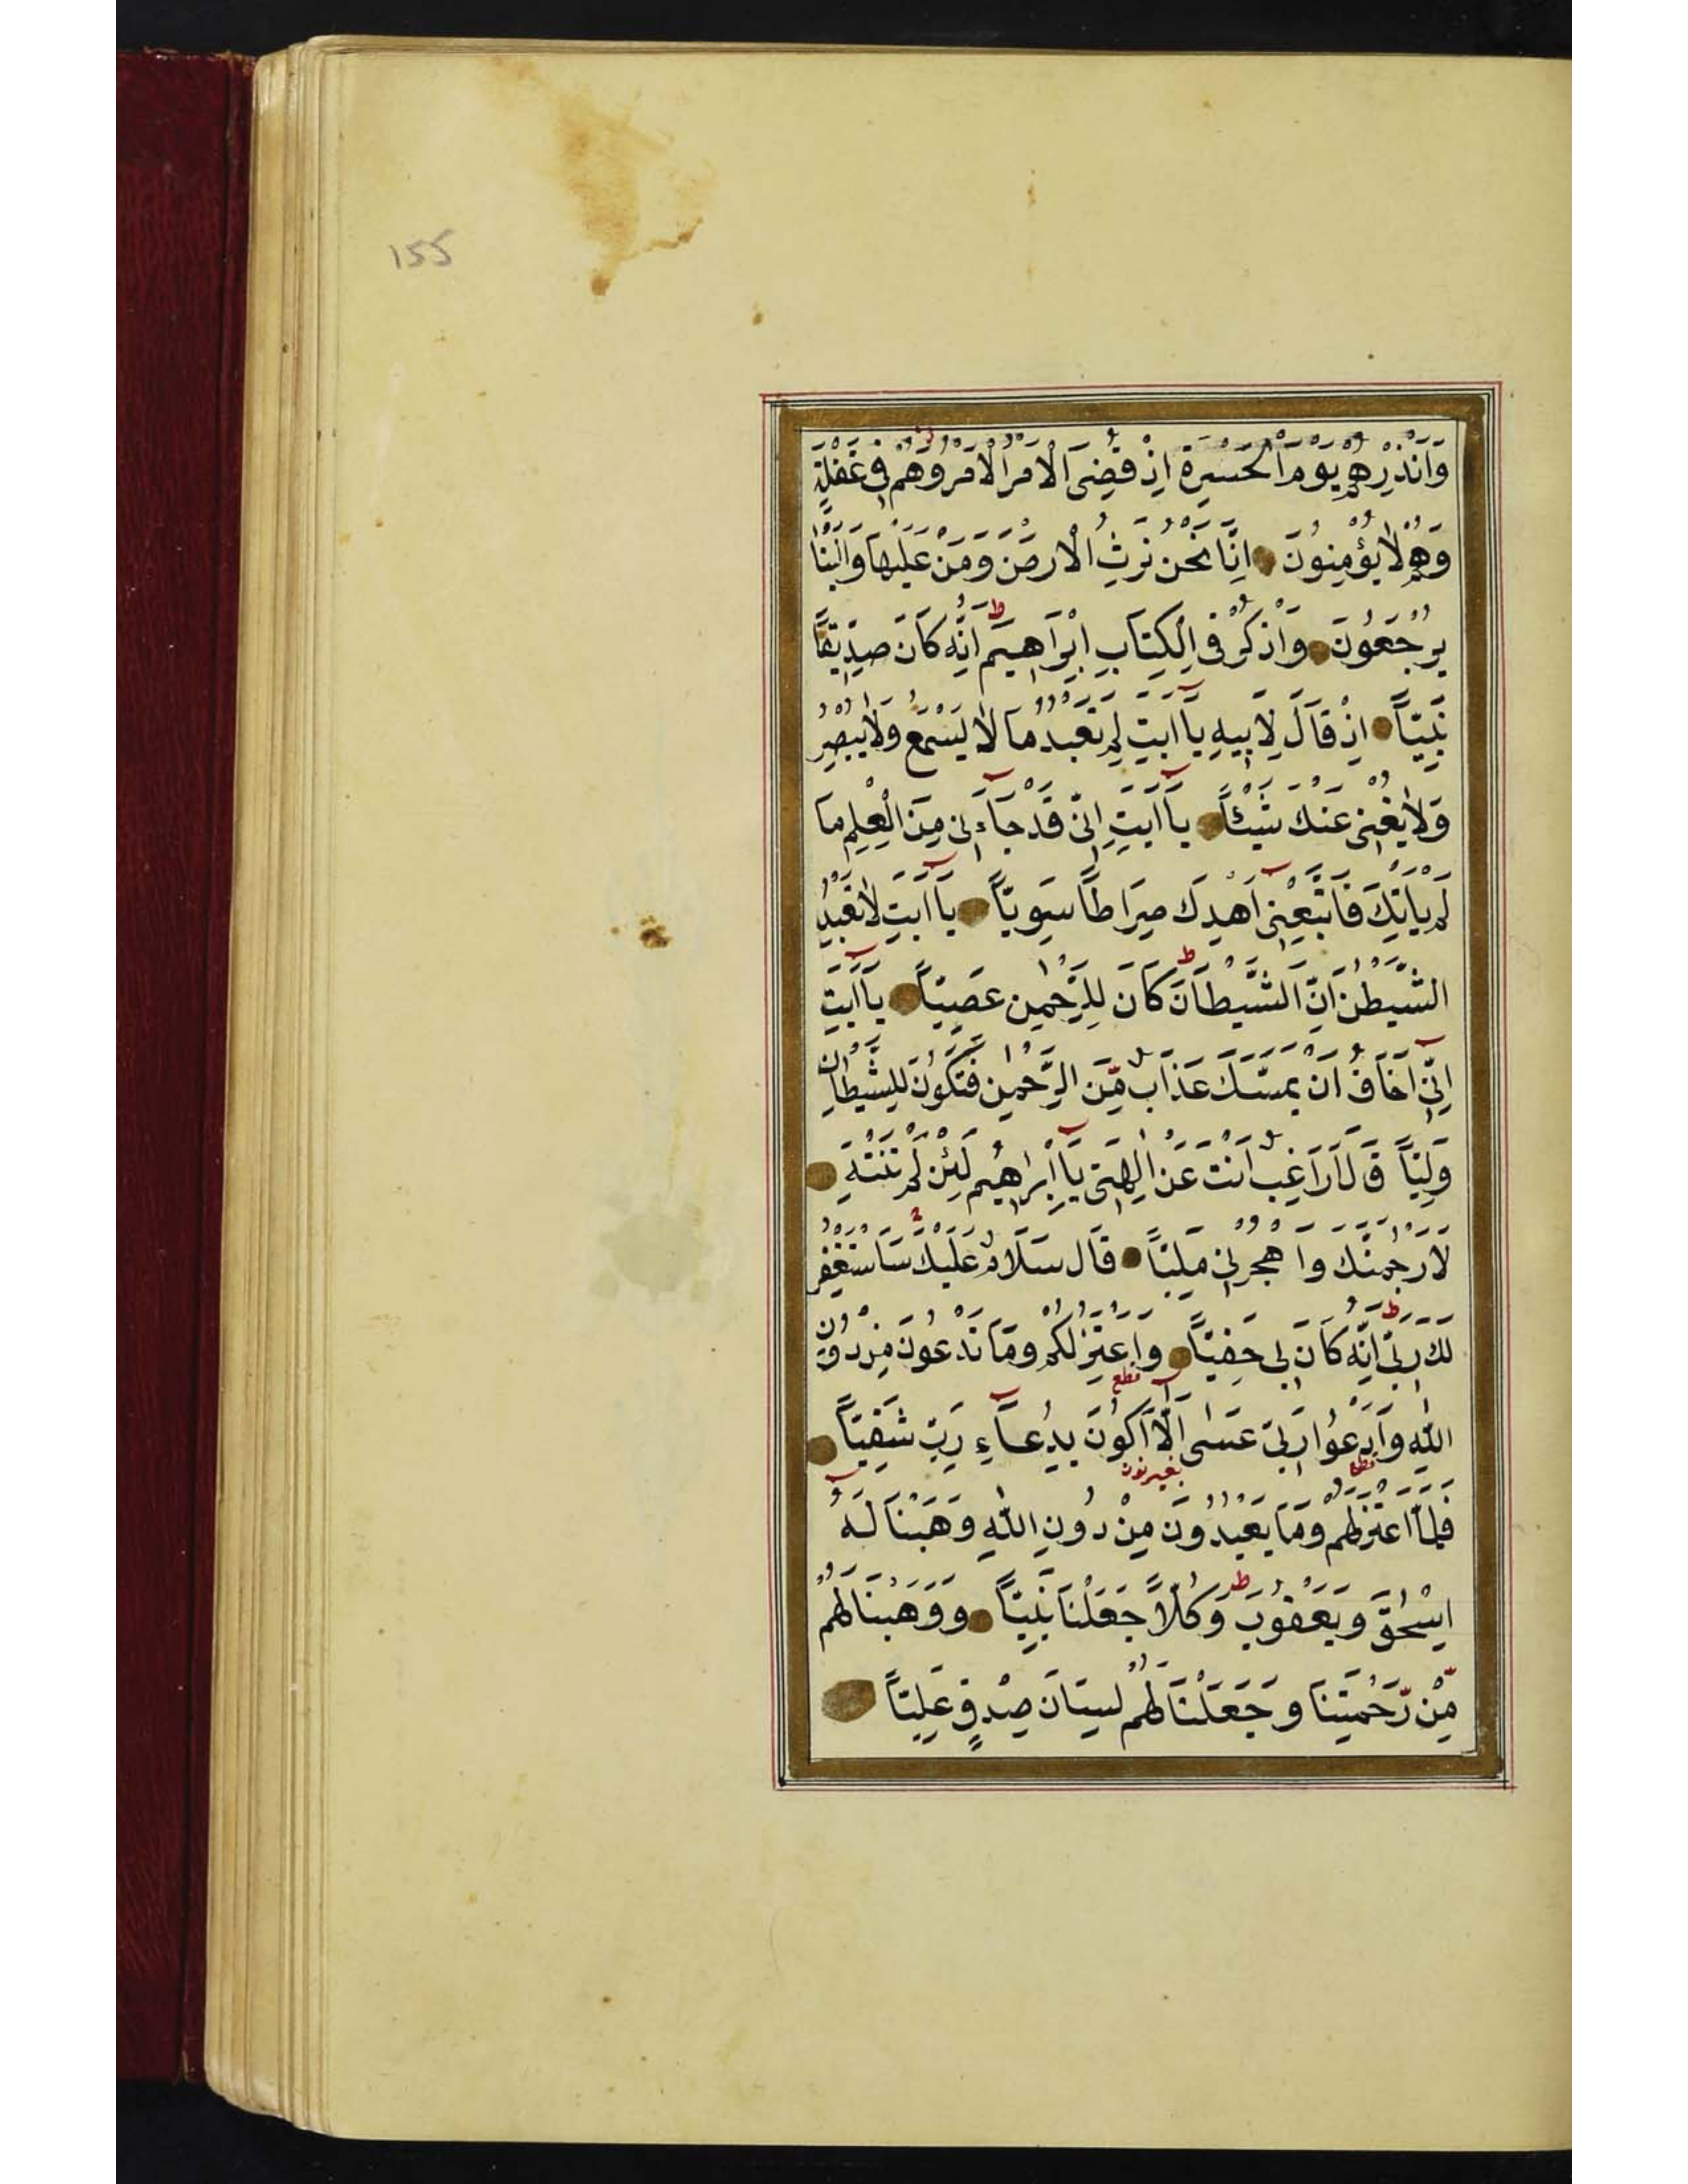 155
وَاَنْذِرْهُمْ يَوْمَ الْحَسْرَةِ اِذْ قُضِىَ الْاَمْرُ الْاَمْرُ وَهُمْ فِى غَفْلَةٍ
وَهُمْ لَا يُؤْمِنُونَ اِنَّا نَحْنُ نَرِثُ الْاَرْضَ وَمَنْ عَلَيْهَا وَاِلَيْنَا
يُرْجَعُونَ وَاذْكُرْ فِى الْكِتَابِ اِبْرَاهِيمَ ط اِنَّهُ كَانَ صِدِّيقًا
نَبِيًّا اِذْ قَالَ لِاَبِيهِ يَآ اَبَتِ لِمَ تَعْبُدُ مَا لَا يَسْمَعُ وَلَا يُبْصِرُ
وَلَا يُغْنِى عَنْكَ شَيْئًا يَآ اَبَتِ اِنِّى قَدْ جَآءَنِى مِنَ الْعِلْمِ مَا
لَمْ يَاْتِكَ فَاتَّبِعْنِى اَهْدِكَ صِرَاطًا سَوِيًّا يَآ اَبَتِ لَا تَعْبُدِ
الشَّيْطٰنَ اِنَّ الشَّيْطَانَ ط كَانَ لِلرَّحْمٰنِ عَصِيًّا يَآ اَبَتِ
اِنِّى اَخَافُ اَنْ يَمَسَّكَ عَذَابٌ مِّنَ الرَّحْمٰنِ فَتَكُونَ لِلشَّيْطَانِ
وَلِيًّا قَالَ اَرَاغِبٌ اَنْتَ عَنْ اٰلِهَتِى يَآ اِبْرٰهِيمُ لَئِنْ لَمْ تَنْتَهِ
لَاَرْجُمَنَّكَ وَاهْجُرْنِى مَلِيًّا قَالَ سَلَامٌ عَلَيْكَ سَاَسْتَغْفِرُ
لَكَ رَبِّى ط اِنَّهُ كَانَ بِى حَفِيًّا وَاَعْتَزِلُكُمْ وَمَا تَدْعُونَ مِنْ دُونِ
قطع
اللهِ وَاَدْعُوا رَبِّى عَسٰى اَلَّآ اَكُونَ بِدُعَآءِ رَبِّى شَقِيًّا
قطع بغير نون
فَلَمَّا اعْتَزَلَهُمْ وَمَا يَعْبُدُونَ مِنْ دُونِ اللهِ وَهَبْنَا لَهُ
اِسْحٰقَ وَيَعْقُوبَ ط وَكُلًّا جَعَلْنَا نَبِيًّا وَوَهَبْنَا لَهُمْ
مِّنْ رَّحْمَتِنَا وَجَعَلْنَا لَهُمْ لِسَانَ صِدْقٍ عَلِيًّا